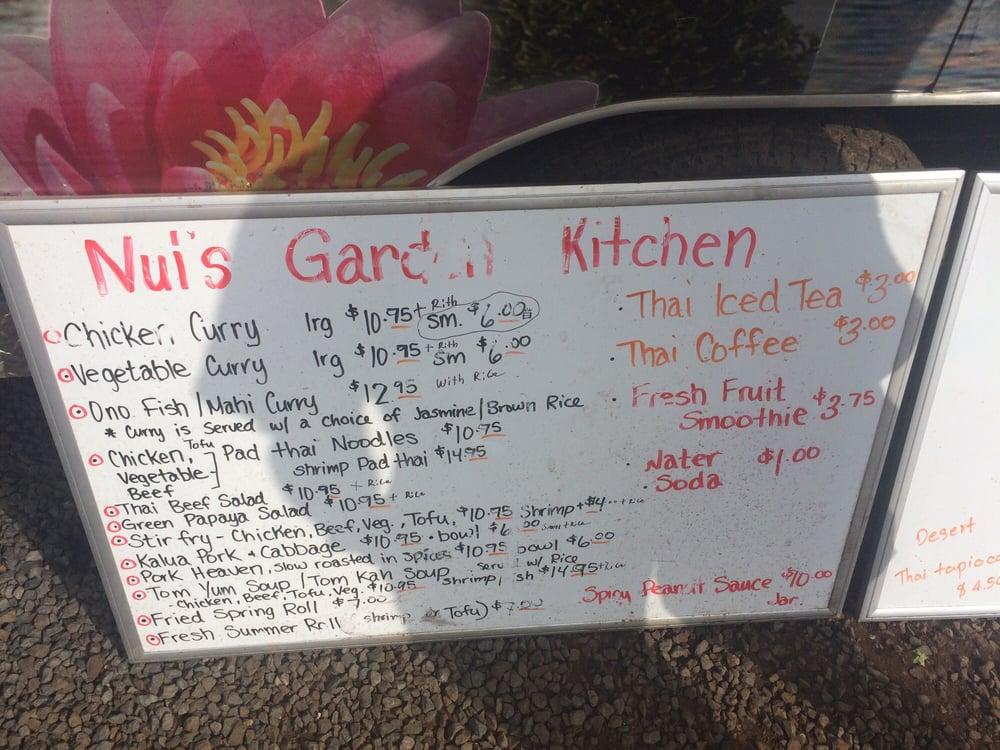 Nui's Garden Kitchen
Chicken Curry lrg $10.75 + Rich sm. $6.00
Vegetable Curry lrg $10.95 + Rich Sm $6.00
Ono Fish / Mahi Curry $12.95 with Rice
* Curry is Served w/ a choice of Jasmine / Brown Rice
Chicken, Tofu Vegetable Beef ] Pad thai Noodles $10.75
shrimp Pad thai $14.95
Thai Beef Salad $10.95 + Rice
Green Papaya Salad $10.95 + Rice
Stir fry - Chicken, Beef, Veg., Tofu, $10.75 Shrimp + $4 + Rice
Kalua Pork & Cabbage $10.95 . bowl $6
Pork Heaven, slow roasted in spices $10.75 bowl $6.00
Tom Yum Soup / Tom Kah Soup w/ Rice
- Chicken, Beef, Tofu, Veg. $10.95 shrimp, $14.95
Fried Spring Roll $7.00
Fresh Summer Roll shrimp or Tofu) $7.00
· Thai Iced Tea $3.00
· Thai Coffee $3.00
· Fresh Fruit
Smoothie $3.75
· Water $1.00
· Soda
Spicy Peanut Sauce $10.00
Jar
Desert
Thai tapioca
$4.50